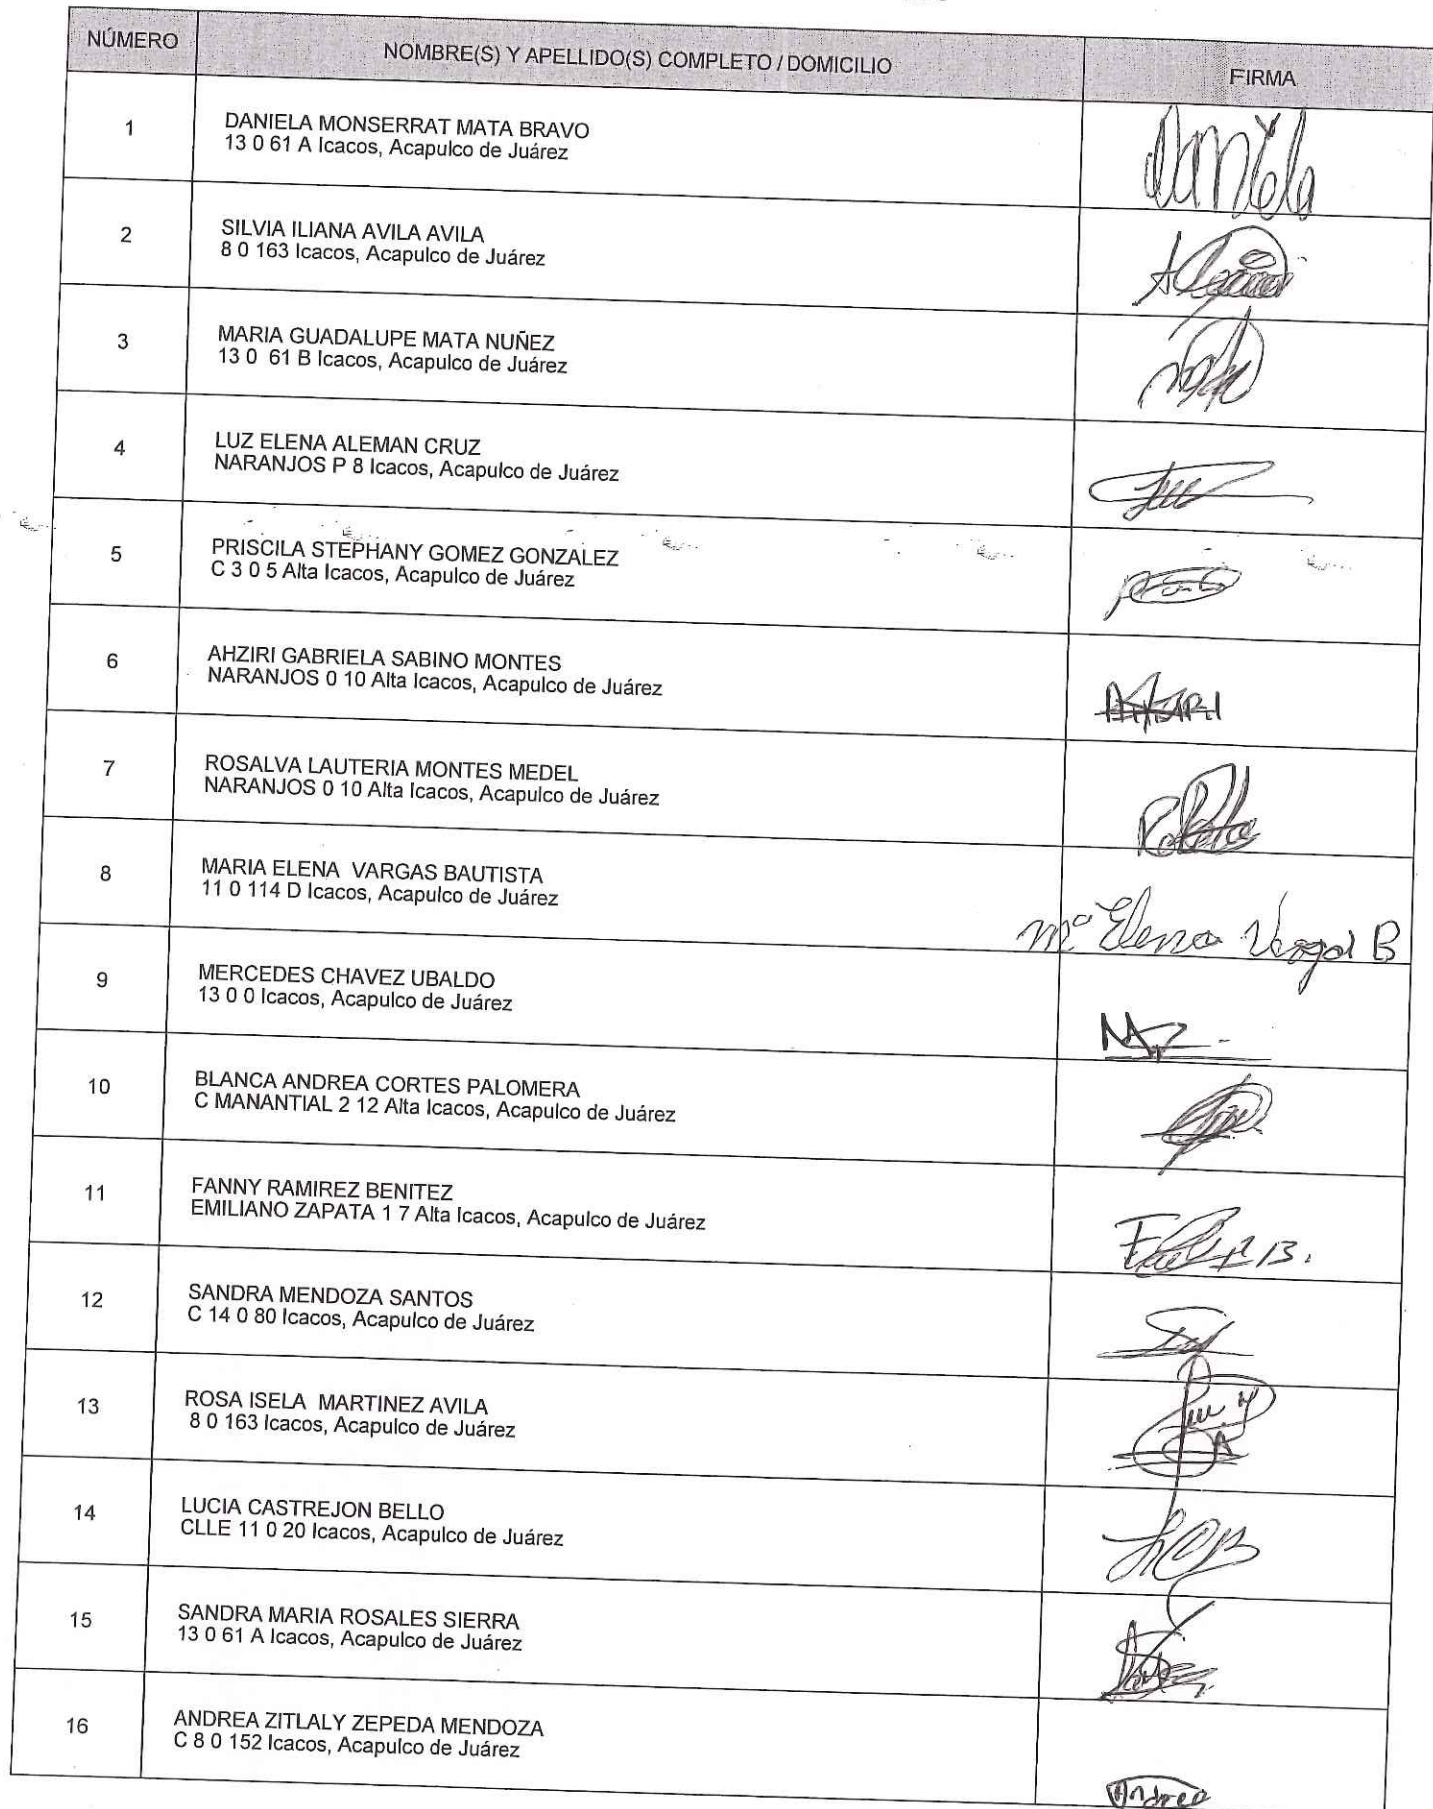 NÚMERO NOMBRE(S) Y APELLIDO(S) COMPLETO / DOMICILIO FIRMA
1 DANIELA MONSERRAT MATA BRAVO
13 0 61 A Icacos, Acapulco de Juárez
Daniela
2 SILVIA ILIANA AVILA AVILA
8 0 163 Icacos, Acapulco de Juárez
3 MARIA GUADALUPE MATA NUÑEZ
13 0 61 B Icacos, Acapulco de Juárez
4 LUZ ELENA ALEMAN CRUZ
NARANJOS P 8 Icacos, Acapulco de Juárez
5 PRISCILA STEPHANY GOMEZ GONZALEZ
C 3 0 5 Alta Icacos, Acapulco de Juárez
6 AHZIRI GABRIELA SABINO MONTES
NARANJOS 0 10 Alta Icacos, Acapulco de Juárez
7 ROSALVA LAUTERIA MONTES MEDEL
NARANJOS 0 10 Alta Icacos, Acapulco de Juárez
8 MARIA ELENA VARGAS BAUTISTA
11 0 114 D Icacos, Acapulco de Juárez
Mª Elena Vargas B
9 MERCEDES CHAVEZ UBALDO
13 0 0 Icacos, Acapulco de Juárez
10 BLANCA ANDREA CORTES PALOMERA
C MANANTIAL 2 12 Alta Icacos, Acapulco de Juárez
11 FANNY RAMIREZ BENITEZ
EMILIANO ZAPATA 1 7 Alta Icacos, Acapulco de Juárez
12 SANDRA MENDOZA SANTOS
C 14 0 80 Icacos, Acapulco de Juárez
13 ROSA ISELA MARTINEZ AVILA
8 0 163 Icacos, Acapulco de Juárez
14 LUCIA CASTREJON BELLO
CLLE 11 0 20 Icacos, Acapulco de Juárez
15 SANDRA MARIA ROSALES SIERRA
13 0 61 A Icacos, Acapulco de Juárez
16 ANDREA ZITLALY ZEPEDA MENDOZA
C 8 0 152 Icacos, Acapulco de Juárez
Andrea